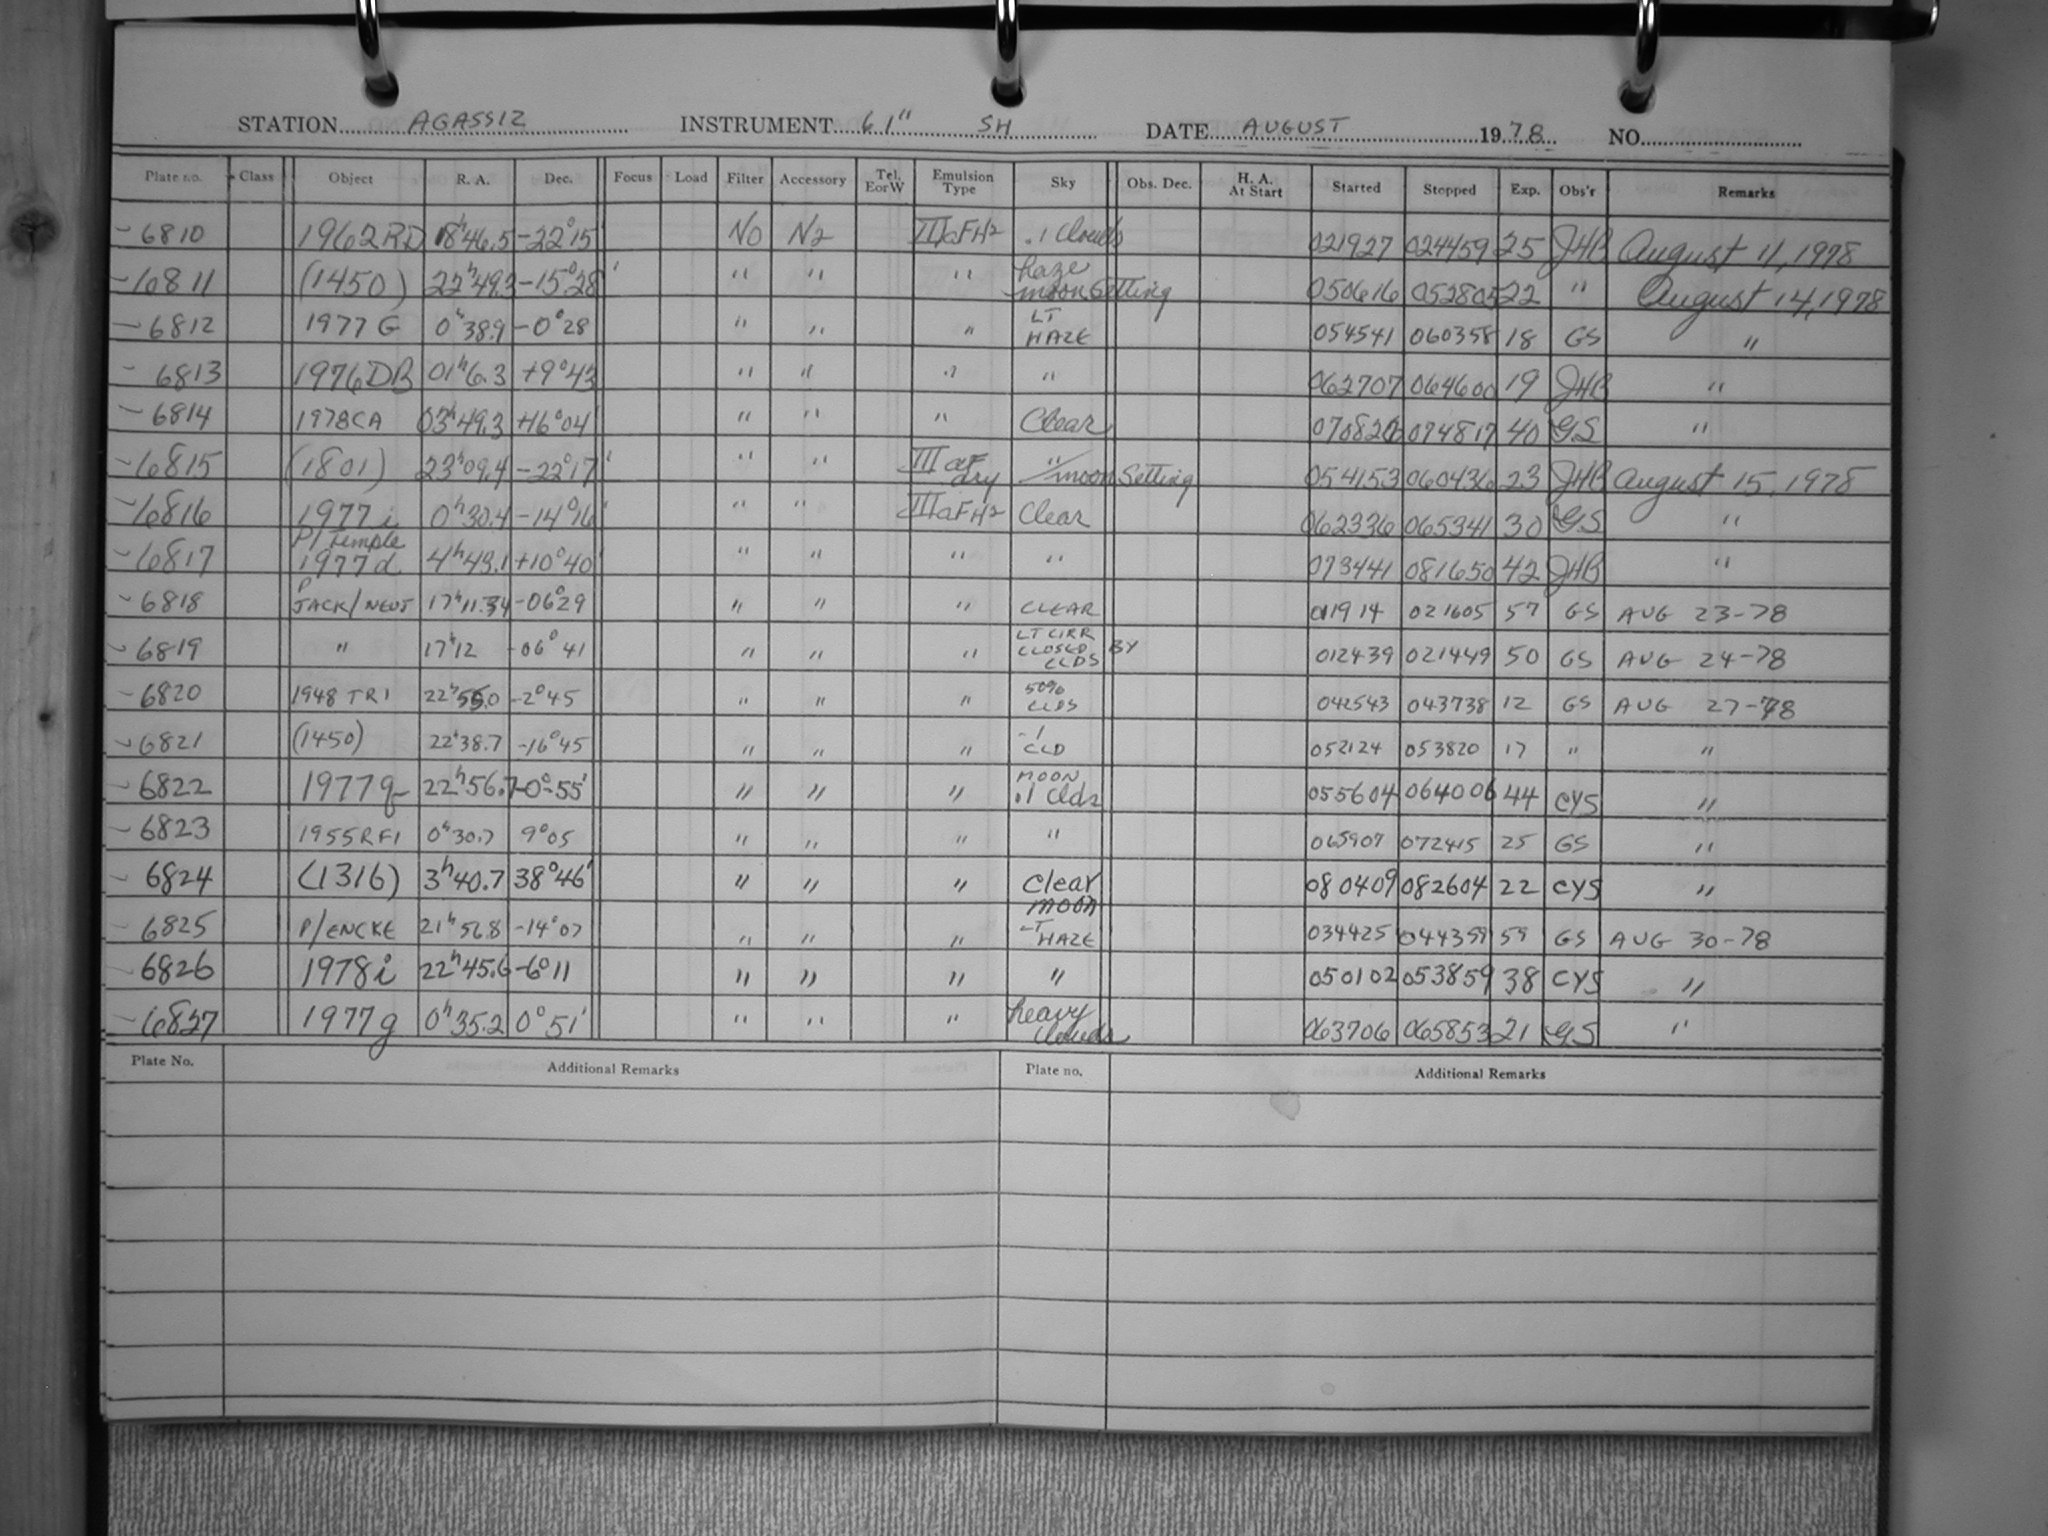 STATION AGASSIZ INSTRUMENT 61" SH DATE AUGUST 1978 NO.
Plate no. Class Object R. A. Dec. Focus Load Filter Accessory Tel. E or W Emulsion Type Sky Obs. Dec. H. A. At Start Started Stopped Exp. Obs'r Remarks
6810 1962RD 18h46.5 -22°15' NO N2 IIIaFH2 .1 Clouds 021927 024459 25 JHB August 11, 1978
6811 (1450) 22h49.3 -15°28' " " " haze moon Setting 050616 052805 22 " August 14, 1978
6812 1977 G 0h38.9 -0°28 " " " LT HAZE 054541 060358 18 GS "
6813 1976DB 01h6.3 +9°43 " " " " 062707 064600 19 JHB "
6814 1978CA 03h49.3 +16°04' " " " Clear 070826 074817 40 GS "
6815 (1801) 23h09.4 -22°17' " " IIIaF dry "/moon Setting 054153 060436 23 JHB August 15, 1978
6816 1977i 0h30.4 -14°16' " " IIIaFH2 Clear 062336 065341 30 GS "
6817 P/Temple 1977d 4h43.1 +10°40' " " " " 073441 081650 42 JHB "
6818 P JACK/NEUJ 17h11.34 -06°29 " " " CLEAR 011914 021605 57 GS AUG 23-78
6819 " 17h12 -06°41 " " " LT CIRR CLOSED BY CLDS 012439 021449 50 GS AUG 24-78
6820 1948 TR1 22h55.0 -2°45 " " " 50% CLDS 042543 043738 12 GS AUG 27-78
6821 (1450) 22h38.7 -16°45 " " " .1 CLD 052124 053820 17 " "
6822 1977q 22h56.7 -0°55' " " " MOON .1 Clds 055604 064006 44 CYS "
6823 1955RF1 0h30.7 9°05 " " " " 065907 072415 25 GS "
6824 (1316) 3h40.7 38°46' " " " Clear moon 080409 082604 22 CYS "
6825 P/ENCKE 21h56.8 -14°07 " " " LT HAZE 034425 044359 59 GS AUG 30-78
6826 1978i 22h45.6 -6°11 " " " " 050102 053859 38 CYS "
6827 1977g 0h35.2 0°51' " " " heavy Clouds 063706 065853 21 GS "
Plate No. Additional Remarks Plate no. Additional Remarks